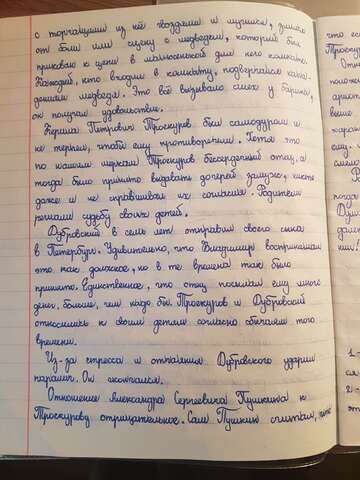 с торчащими из неё гвоздями и мужика,
от боли или сценку с медведем, который был
прикован к цепи в малюсенькой для него комнате.
Каждый, кто входил в комнату, подвергался напа-
дениям медведя. Это всё вызывало смех у барина,
он получал удовольствие.
Кирила Петрович Троекуров был самодуром и
не терпел, чтобы ему противоречили. Хотя это
по нашим меркам Троекуров бессердечный отец, а
тогда было принято выдавать дочерей замуж,
даже и не спрашивая их согласия. Родители
решали судьбу своих детей.
Дубровский в семь лет отправил своего сына
в Петербург. Удивительно, что Владимир воспринимал
это как должное, но в те времена так было
принято. Единственное, что отец посылал ему много
денег. Больше, чем надо бы. Троекуров и Дубровский
относились к своим детям согласно обычаям того
времени.
Из-за стресса и отчаяния Дубровского ударил
паралич. Он скончался.
Отношение Александра Сергеевича Пушкина к
Троекурову отрицательное. Сам Пушкин считал,
что ес
Троекур
Отно
полож
арист
ему.
Ро
когда
Дуб
дале
ния!
1-
2-